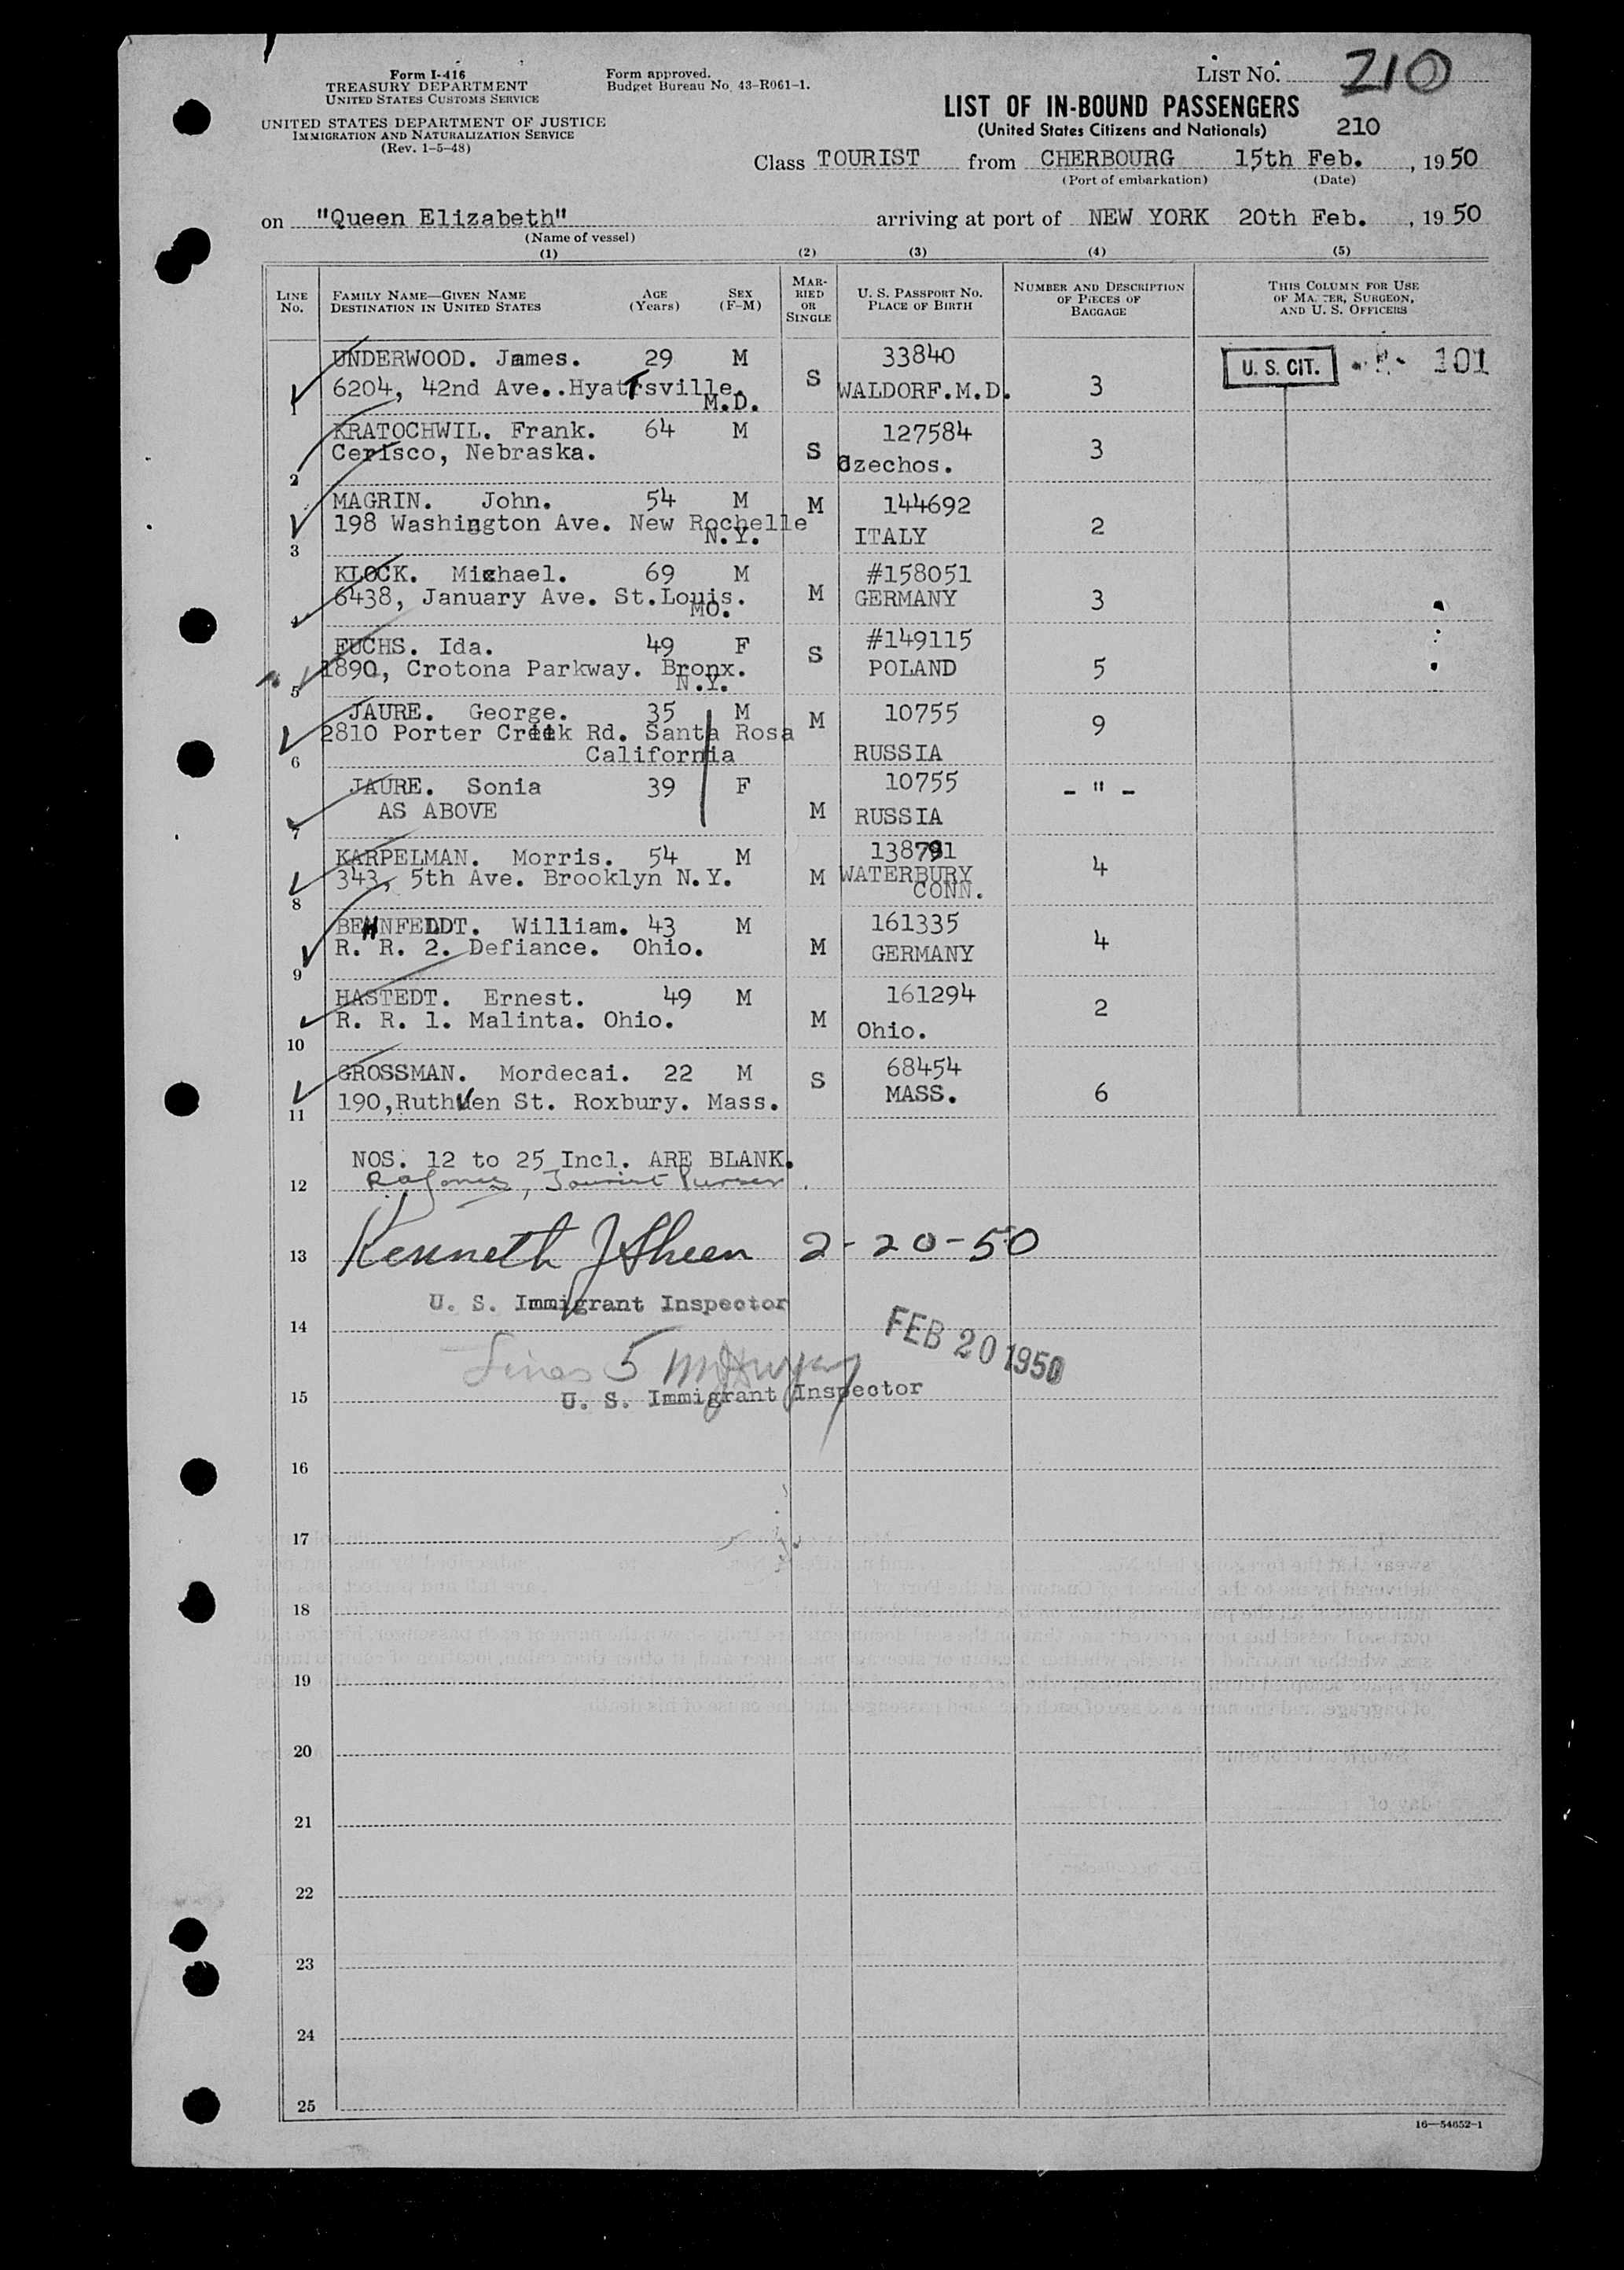 Form I-416
TREASURY DEPARTMENT
UNITED STATES CUSTOMS SERVICE
UNITED STATES DEPARTMENT OF JUSTICE
IMMIGRATION AND NATURALIZATION SERVICE
(Rev. 1-5-48)
Form approved.
Budget Bureau No. 43-R061-1.
LIST No. 210
LIST OF IN-BOUND PASSENGERS
(United States Citizens and Nationals) 210
Class TOURIST from CHERBOURG 15th Feb. , 1950
(Port of embarkation) (Date)
on "Queen Elizabeth" arriving at port of NEW YORK 20th Feb. , 1950
(Name of vessel)
(1) (2) (3) (4) (5)
LINE No. FAMILY NAME—GIVEN NAME DESTINATION IN UNITED STATES AGE (Years) SEX (F-M) MARRIED OR SINGLE U. S. PASSPORT No. PLACE OF BIRTH NUMBER AND DESCRIPTION OF PIECES OF BAGGAGE THIS COLUMN FOR USE OF MASTER, SURGEON, AND U. S. OFFICERS
UNDERWOOD. James. 29 M 33840 U. S. CIT. 101
1 6204, 42nd Ave..Hyattsville. M.D. S WALDORF.M.D. 3
KRATOCHWIL. Frank. 64 M 127584
2 Cerisco, Nebraska. S Czechos. 3
MAGRIN. John. 54 M M 144692
3 198 Washington Ave. New Rochelle N.Y. ITALY 2
KLOCK. Michael. 69 M #158051
4 6438, January Ave. St.Louis. MO. M GERMANY 3
FUCHS. Ida. 49 F S #149115
5 1890, Crotona Parkway. Bronx. N.Y. POLAND 5
JAURE. George. 35 M M 10755 9
6 2810 Porter Creek Rd. Santa Rosa
California RUSSIA
JAURE. Sonia 39 F 10755 - " -
7 AS ABOVE M RUSSIA
KARPELMAN. Morris. 54 M 138791 4
8 343, 5th Ave. Brooklyn N.Y. M WATERBURY CONN.
BEHNFELDT. William. 43 M 161335
9 R. R. 2. Defiance. Ohio. M GERMANY 4
HASTEDT. Ernest. 49 M 161294 2
10 R. R. 1. Malinta. Ohio. M Ohio.
GROSSMAN. Mordecai. 22 M S 68454
11 190,Ruthven St. Roxbury. Mass. MASS. 6
NOS. 12 to 25 Incl. ARE BLANK.
12 Tourist Purser
13 Kenneth J Sheen 2-20-50
U. S. Immigrant Inspector
14 FEB 20 1950
Lines 5
15 U. S. Immigrant Inspector
16
17
18
19
20
21
22
23
24
25
16—54652-1